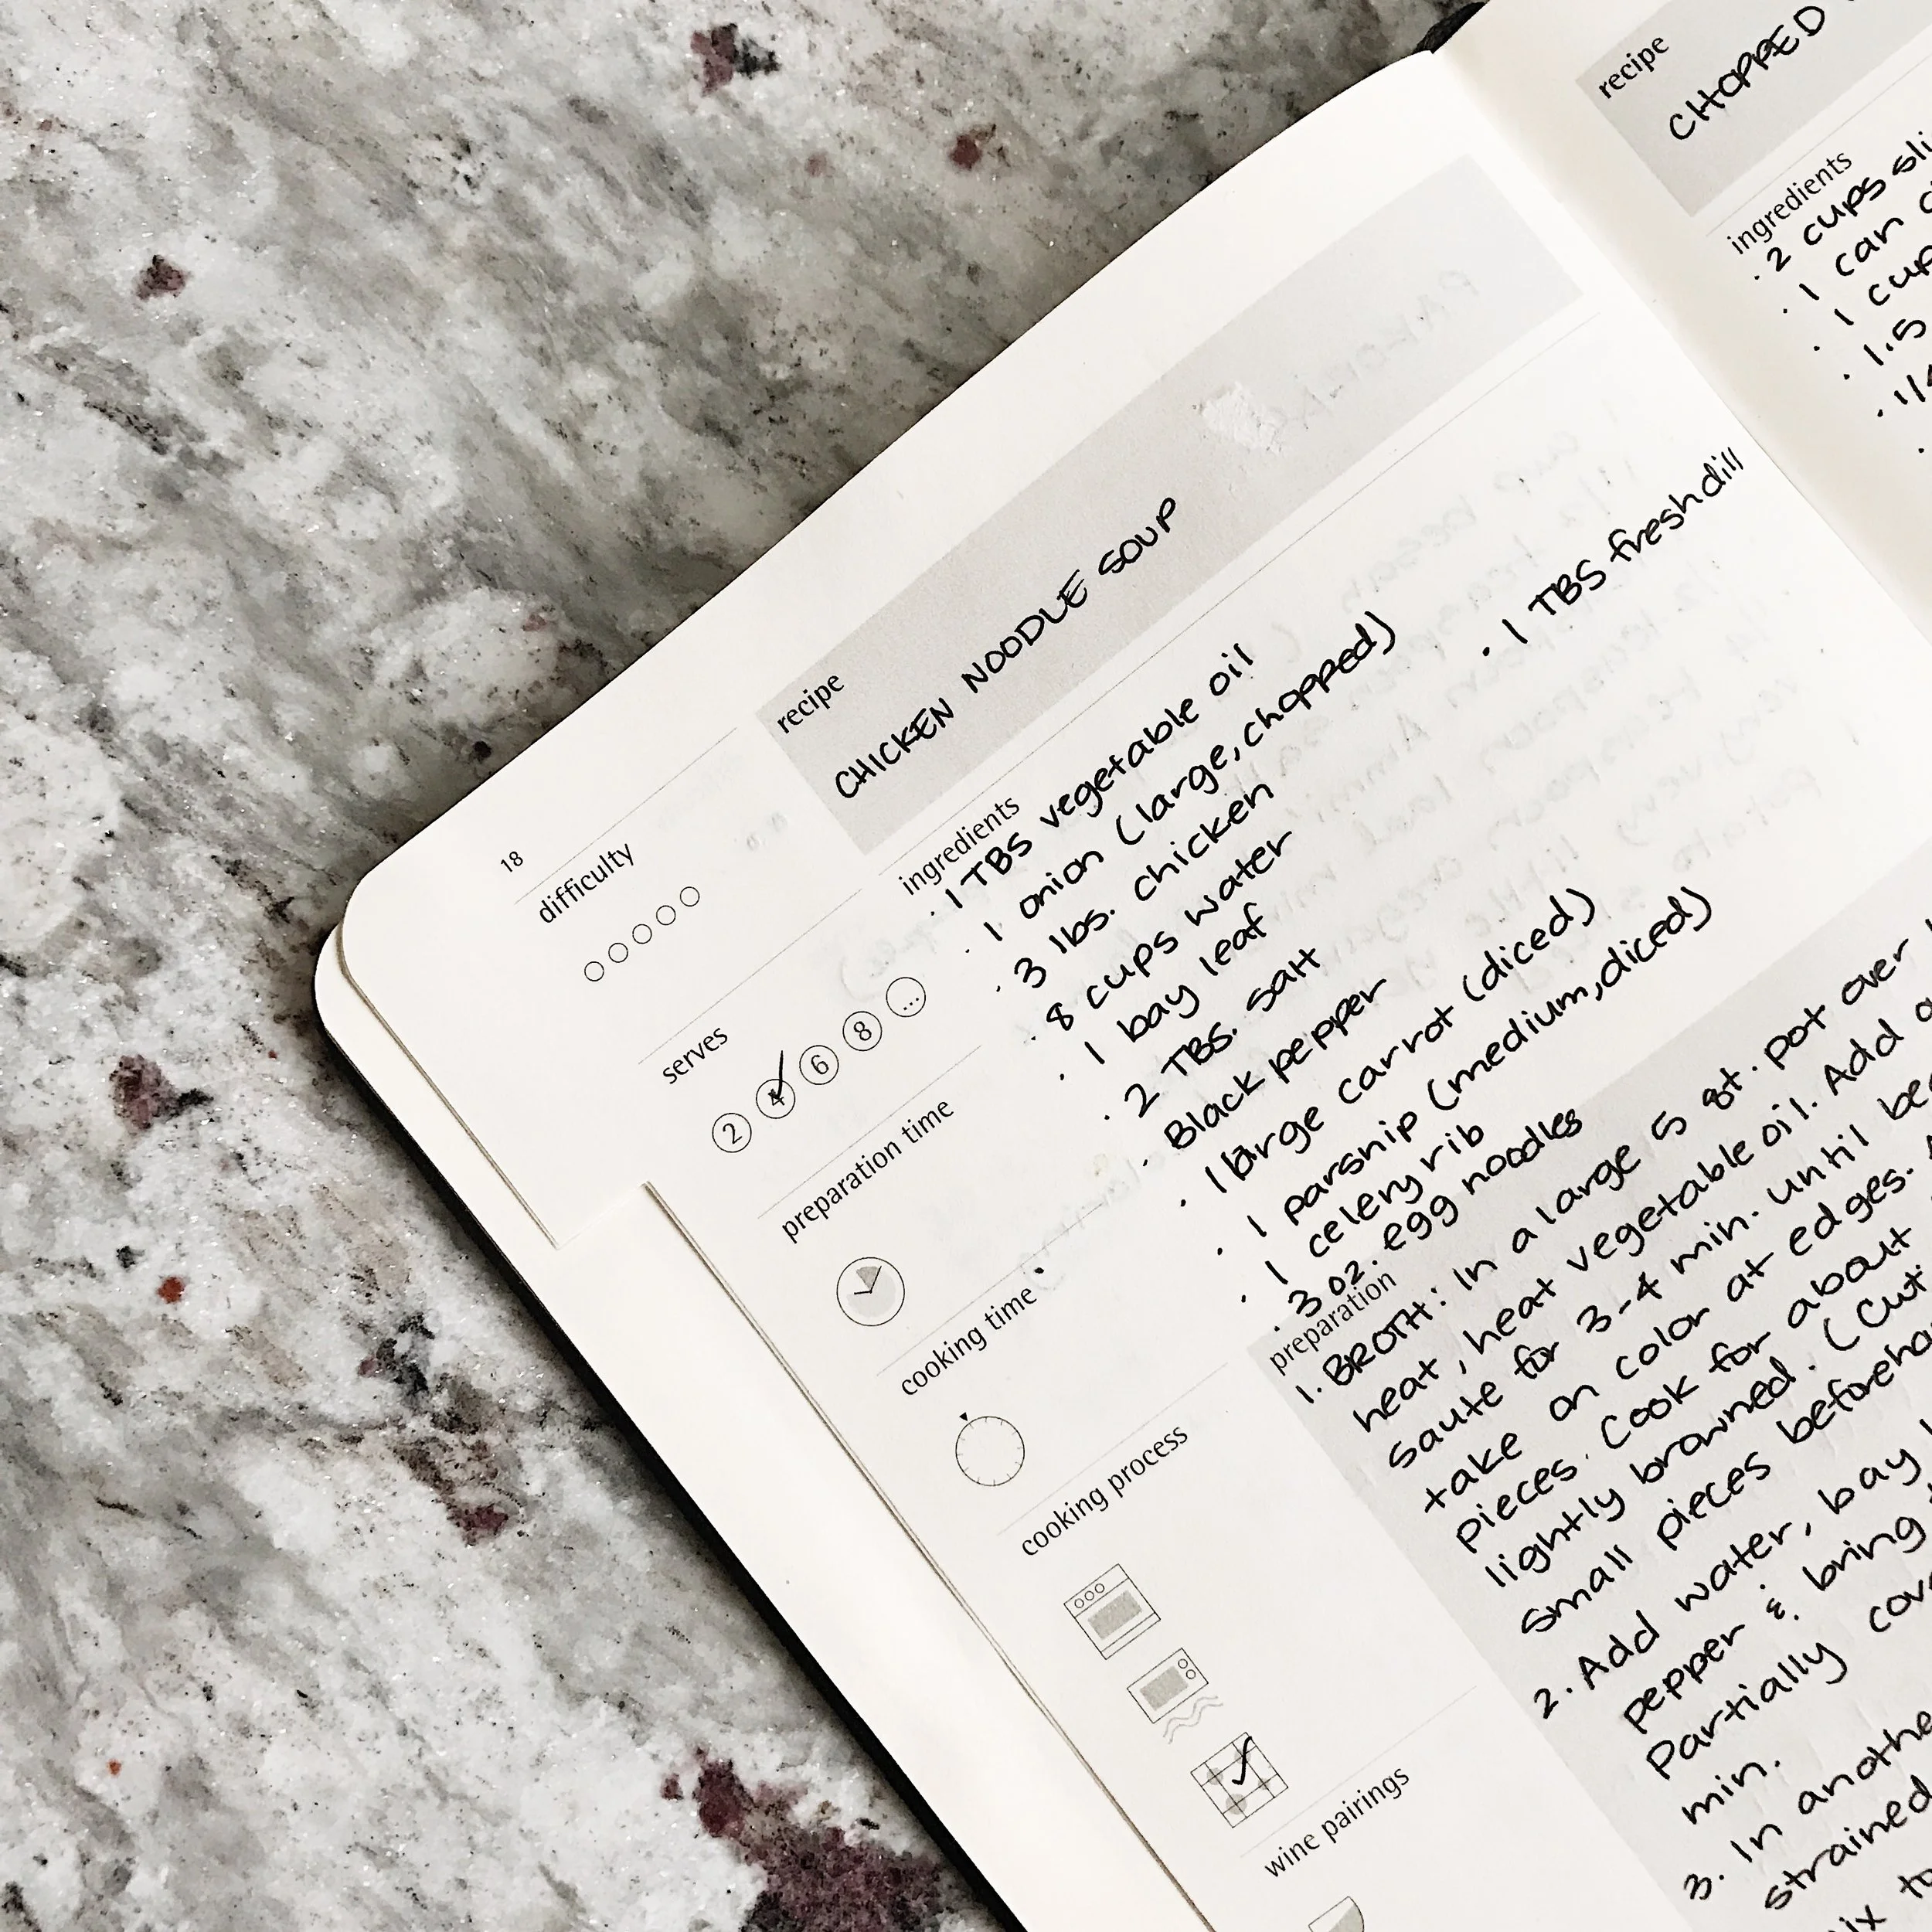 18
difficulty
serves
2 4 6 8 ...
preparation time
cooking time
cooking process
wine pairings
recipe
CHICKEN NOODLE SOUP
ingredients
· 1 TBS vegetable oil
· 1 onion (large, chopped)
· 3 lbs. chicken
· 8 cups water
· 1 bay leaf
· 2 TBS. salt
· Black pepper
· 1 large carrot (diced)
· 1 parsnip (medium, diced)
· 1 celery rib
· 3 oz. egg noodles
· 1 TBS fresh dill
preparation
1. BROTH: In a large 5 qt. pot over
heat, heat vegetable oil. Add
saute for 3-4 min. until
take on color at edges.
pieces. Cook for about
lightly browned. (Cut
small pieces
2. Add water, bay
pepper & bring
Partially
min.
3. In
strained
recipe
CHOPPED
ingredients
· 2 cups
· 1 can
· 1
· 1.5